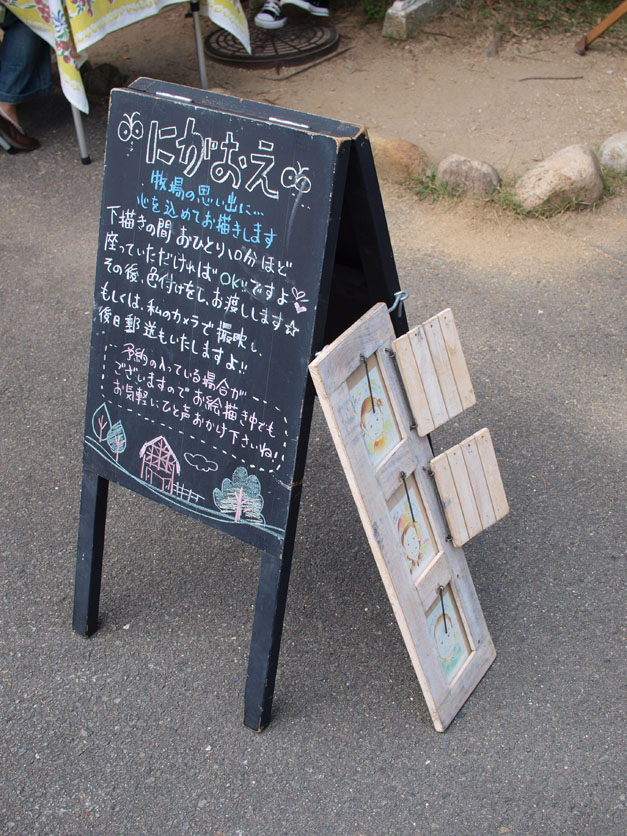 にがおえ
牧場の思い出に…
心を込めてお描きします
下描きの間 おひとり10分ほど
座っていただければOKですよ
その後、色付けをし、お渡しします☆
もしくは、私のカメラで撮映し、
後日郵送もいたしますよ!!
予約の入っている場合が
ございますのでお絵描き中でも
お気軽にひと声おかけ下さいね!